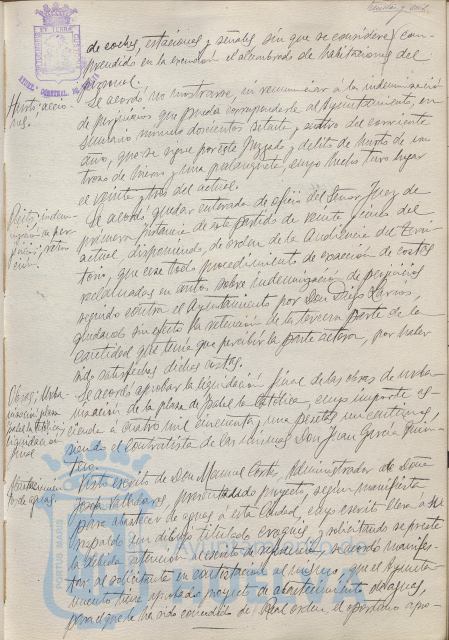 de coches, estaciones y señales sin que se considere com-
prendido en la exención el alumbrado de habitaciones del
personal.
Hurto; accio-
nes;
Se acordó no mostrarse, sin renunciar á la indemnización
de perjuicios que pueda corresponderle al Ayuntamiento, en
sumario número doscientos setenta y cuatro del corriente
año, que se sigue por este Juzgado y delito de hurto de un
trozo de hierro y una palanqueta, cuyo hecho tuvo lugar
el veinte y tres del actual.
Pleito; indem-
nización de per-
juicios;
Se acordó quedar enterada de oficio del Señor Juez de
primera instancia de este partido de veinte y cinco del
actual, disponiendo, de orden de la Audiencia del terri-
torio, que cese todo procedimiento de exacción de costas
en autos sobre indemnización de perjuicios
seguido contra el Ayuntamiento por Don Diego
quedando sin efecto la retención de la tercera parte de la
cantidad que tenía que percibir la parte actora, por haber
sido satisfechas dichas costas.
Obras; Urba-
nización plaza
Isabel la Católica;
liquidación
final
Se acordó aprobar la liquidación final de las obras de urba-
nización de la plaza de Isabel la Católica, cuyo importe as-
ciende á cuatro mil cincuenta y una pesetas un céntimo,
siendo el contratista de las mismas Don Juan García Quin-
tero.
Abastecimien-
to de aguas.
Visto escrito de Don Manuel Administrador de Doña
Josefa Valladares, presentando proyecto, según manifiesta
para abastecer de aguas á esta Ciudad, cuyo escrito lleva á su
respaldo un dibujo titulado croquis y solicitando se preste
la debida atención al escrito de referencia, se acordó manifes-
tar al solicitante en contestación al mismo, que el Ayunta-
miento tiene aprobado proyecto de abastecimiento de aguas,
para el que le ha sido concedido de Real orden, el oportuno apro-